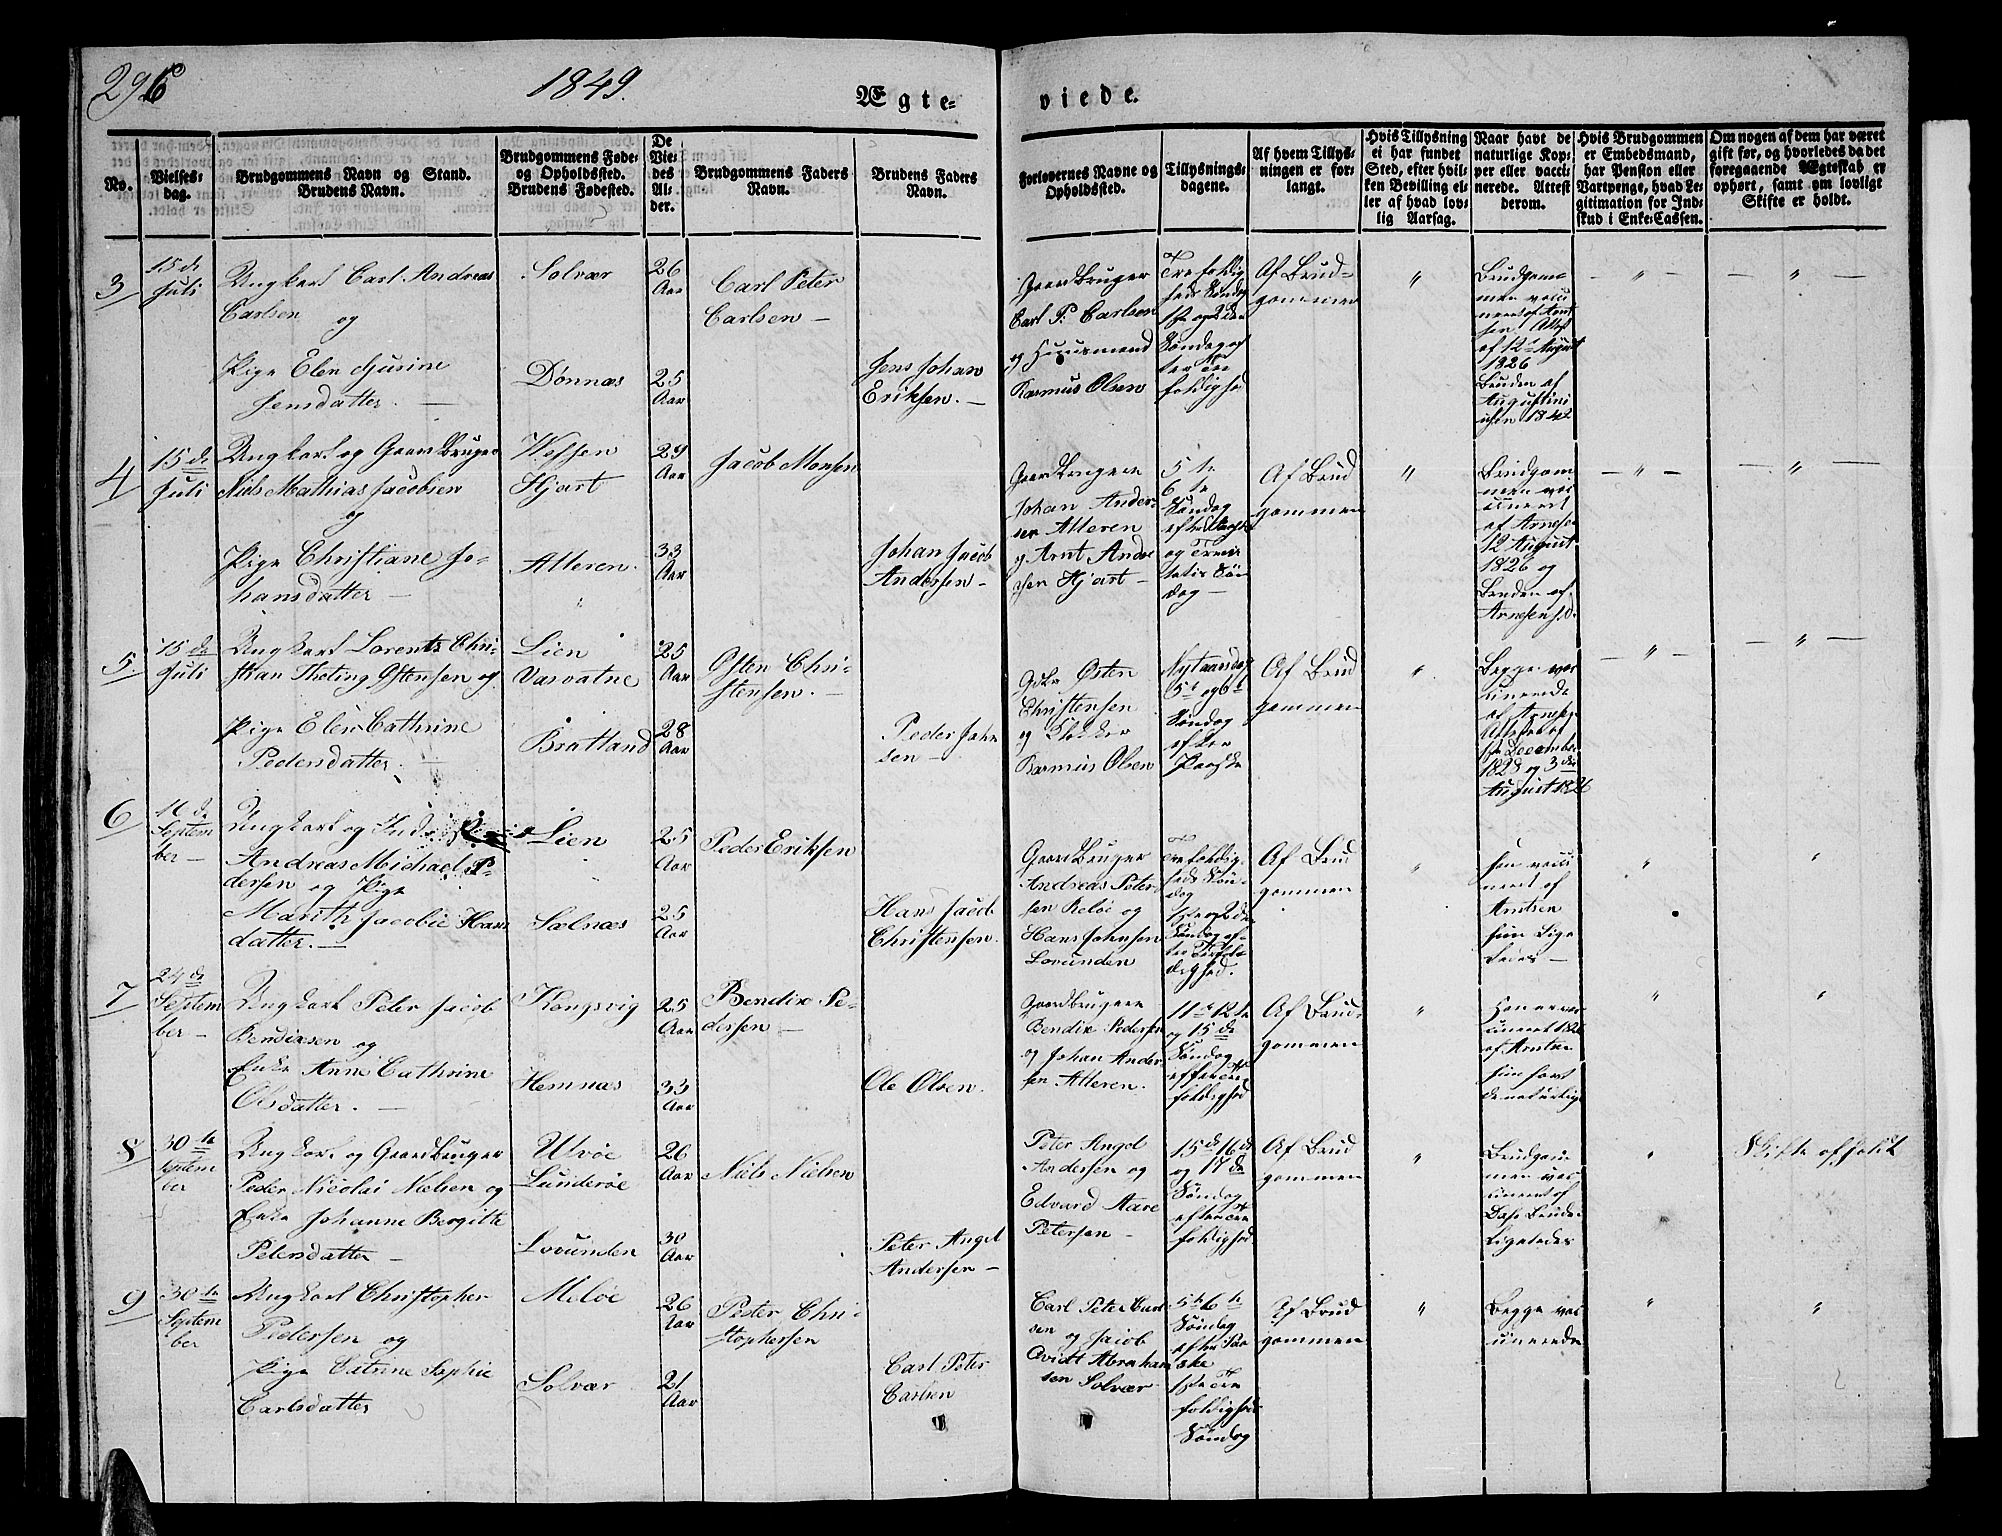 296
1849.
Ægte-
viede.
No.
Vielses-
dag.
Brudgommens Navn og Stand.
Brudens Navn.
Brudgommens Føde-
og Opholdssted.
Brudens Fødested.
De
Vie-
des
Al-
der.
Brudgommens Faders
Navn.
Brudens Faders
Navn.
Forlovernes Navne og
Opholdssted.
Tillysnings-
dagene.
Af hvem Tillys-
ningen er for-
langt.
Hvis Tillysning
ei har fundet
Sted, efter hvil-
ken Bevilling el-
ler af hvad lov-
lig Aarsag.
Naar havt de
naturlige Kop-
per eller vacci-
nerede. Attest
derom.
Hvis Brudgommen
er Embedsmand,
har Pension eller
Vartpenge, hvad Le-
gitimation for Ind-
skud i Enke-Cassen.
Om nogen af dem har været
gift før, og hvorledes da det
foregaaende Ægteskab er
ophørt, samt om lovligt
Skifte er holdt.
3
15 de
Juli
Ungkarl Carl Andreas
Carlsen og
Pige Elen Jusine
Jensdatter. —
Solvær
Dønnæs
26
Aar
25
Aar
Carl Peter
Carlsen —
Jens Johan
Eriksen. —
Gaardbruger
Carl P. Carlsen
og Huusmand
Rasmus Olsen
Trefoldig
heds Søndag
1te og 2den
Søndag ef
ter Tre
foldighed
Af Brud-
gommen
"
Brudgom-
men vacci
neret af Arnt
sen Attest
af 12te August
1826
Bruden af
Augustini
usen 1842
— " —
— " —
4
15 de
Juli
Ungkarl og Gaardbruger
Niels Mathias Jacobsen
og
Pige Christiane Jo-
hansdatter —
Wessen
Hjart
Alteren.
29
Aar
33
Aar
Jacob Monsen
Johan Jacob
Andersen —
Gaardbrugere
Johan Ander-
sen Alteren
og Arnt Ande
sen Hjart —
5 te
6 te
Søndag
efter Paaske
og Trini
tatis Søn
dag —
Af Brud
gommen
"
Brudgom
men vac
cineret
af Arnesen
12 August
1826 og
Bruden af
Arnesen sd.
— " —
— " —
5
15 de
Juli
Ungkarl Lorents Chri-
stian Theting Østensen og
Pige Elen Cathrine
Pedersdatter. —
Lien
Vasvatne
Bratland
25
Aar
28
Aar
Østen Chri-
stensen. —
Peder Joha
sen —
Østen
Christensen
og Klokker
Rasmus Olsen
Nytaarsdag
5te og 6te
Søndag
efter
Paaske
Af Brud
gommen
"
Begge vac
cinerede
af Arnesen
Attester af
December
1828 og 3die
August 1826
— " —
— " —
6
16 de
Septem
ber —
Ungkarl og
Andreas Michael Pe-
dersen og Pige
Marith Jacobie Hans
datter. —
Lien
Sælnæs
25
Aar
25
Aar
Peder Eriksen
Hans Jacob
Christensen.
Gaardbruger
Andreas Peter
sen Reløe og
Hans Johnsen
Lovunden
Trefoldig-
heds Søn-
dag
1ste og 2de
Søndag ef-
ter Trefol-
dighed.
Af Brud
gommen
"
han vacci
neret af
Arntsen
hun lige
ledes —
"
"
7
24 de
Septem
ber —
Ungkarl Peter Jacob
Bendixsen og
Enke Anne Cathrine
Olsdatter. —
Kongsvig
Hemnæs
25
Aar
33
Aar
Bendix Pe-
dersen —
Ole Olsen.
Gaardbrugere
Bendix Pedersen
og Johan Ander
sen Alteren.
11te 12te
og 15 de
Søndag
efter Tre
foldighed
Af Brud-
gommen
"
Han er vac
cineret 1826
af Arntsen
hun havt
de naturlige
"
"
8
30 te
Septem
ber
Ungkarl og Gaardbruger
Peder Nicolai Nielsen og
Enke Johanne Bergitte
Petersdatter —
Utvøe
Lunderøe
Lovunden
26
Aar
30
Aar
Niels Nielsen
Peter Angel
Andersen —
Peter Angel
Andersen og
Edvard Aare
Petersen —
15 de 16 de
og 17 de
Søndag
efter Tre
foldighed
Af Brud
gommen
"
Brudgom
men vac
cineret af
Bass Bruden
Ligeledes
"
Skifte afholdt
9
30 te
Septem
ber
Ungkarl Christopher
Pedersen og
Pige Catrine Sophie
Carlsdatter
Meløe
Solvær
26
Aar
21
Aar
Peder Chri
stophersen
Carl Peter
Carlsen
Carl Peter Carl
sen og Jacob
Qvidt Abraham
sen Solvær
5te 6te
Søndag
efter Paa
ske
1ste Tre
foldigheds
Søndag
Af Brud
gommen
"
Begge vac
cinerede
"
"